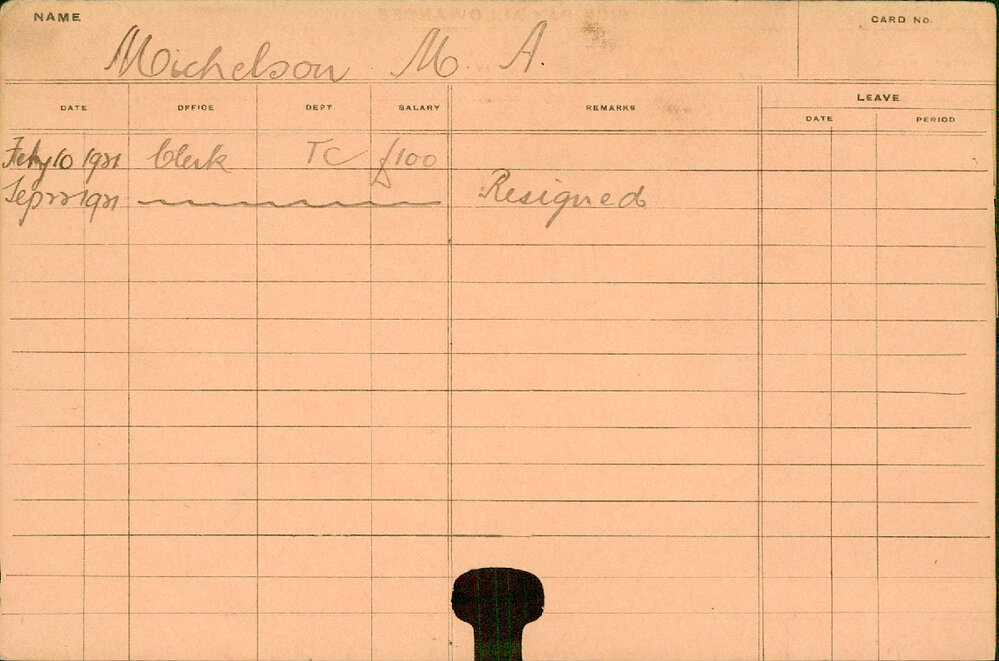 NAME
CARD No.
Michelson M. A.
DATE OFFICE DEPT. SALARY REMARKS LEAVE
DATE PERIOD
Feby 10 1921 Clerk TC £100
Sep 22 1921 Resigned